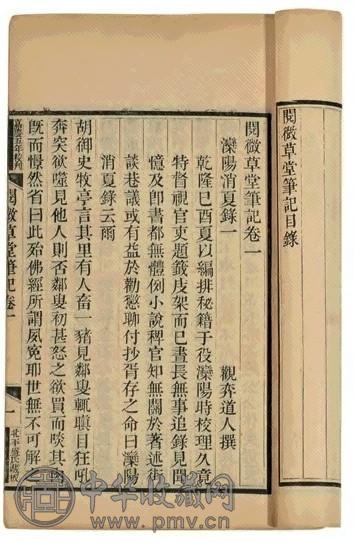 閱微草堂筆記目錄
閱微草堂筆記卷一
灤陽消夏錄一
觀弈道人撰
乾隆己酉夏以編排秘籍于役灤陽時校理久竟
特督視官吏題籤庋架而已晝長無事追錄見聞
憶及即書都無體例小說稗官知無關於著述街
談巷議或有益於勸懲聊付抄胥存之命曰灤陽
消夏錄云爾
胡御史牧亭言其里有人畜一豬見鄰叟輒瞋目狂吼
奔突欲噬見他人則否鄰叟初甚怒之欲買而啖其肉
既而憬然省曰此殆佛經所謂夙冤耶世無不可解
閱微草堂筆記卷一
一
北平盛氏藏板
中华收藏网
www.pmv.cn